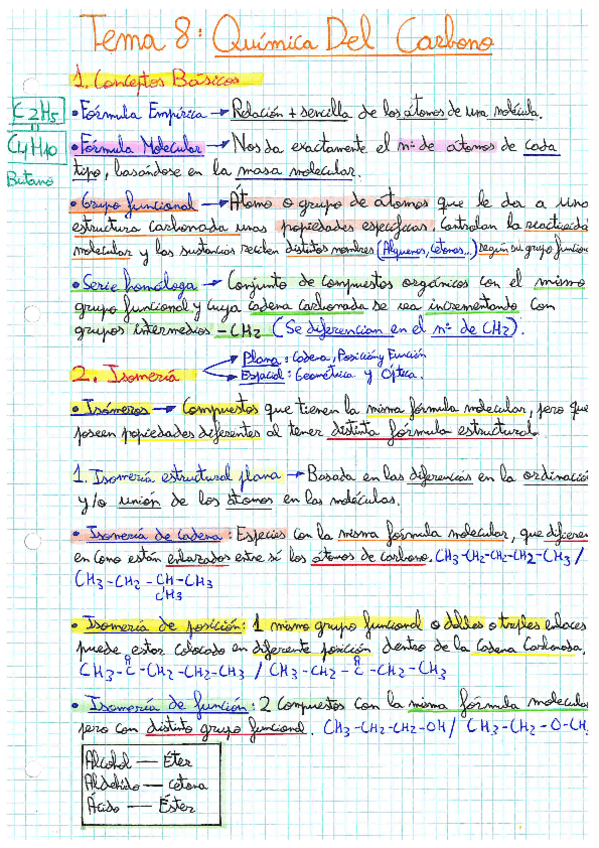 Tema 8: Química Del Carbono
1. Conceptos Básicos
C2H5
C4H10
Butano
• Fórmula Empírica → Relación + sencilla de los átomos de una molécula.
• Fórmula Molecular → Nos da exactamente el nº de átomos de cada
tipo, basándose en la masa molecular.
• Grupo funcional → Átomo o grupo de átomos que le da a una
estructura carbonada unas propiedades específicas. Controlan la reactividad
molecular y las sustancias reciben distintos nombres (Alquenos, cetonas...) según su grupo funcion
• Serie homóloga → Conjunto de compuestos orgánicos con el mismo
grupo funcional y cuya cadena carbonada se vea incrementando con
grupos intermedios -CH2 (Se diferencian en el nº de CH2).
2. Isomería
Plana: Cadena, Posición y Función
Espacial: Geométrica y Óptica.
• Isómeros → Compuestos que tienen la misma fórmula molecular, pero que
poseen propiedades diferentes al tener distinta fórmula estructural.
1. Isomería estructural plana → Basada en las diferencias en la ordinació
y/o unión de los átomos en las moléculas.
• Isomería de cadena: Especies con la misma fórmula molecular, que difieren
en como están enlazados entre sí los átomos de carbono. CH3-CH2-CH2-CH2-CH3 /
CH3-CH2-CH-CH3
CH3
• Isomería de posición: 1 mismo grupo funcional o dobles o triples enlaces
puede estar colocado en diferente posición dentro de la cadena carbonada.
O O
CH3-C-CH2-CH2-CH3 / CH3-CH2-C-CH2-CH3
• Isomería de función: 2 compuestos con la misma fórmula molecula
pero con distinto grupo funcional. CH3-CH2-CH2-OH / CH3-CH2-O-CH
Alcohol — Éter
Aldehído — cetona
Ácido — Éster